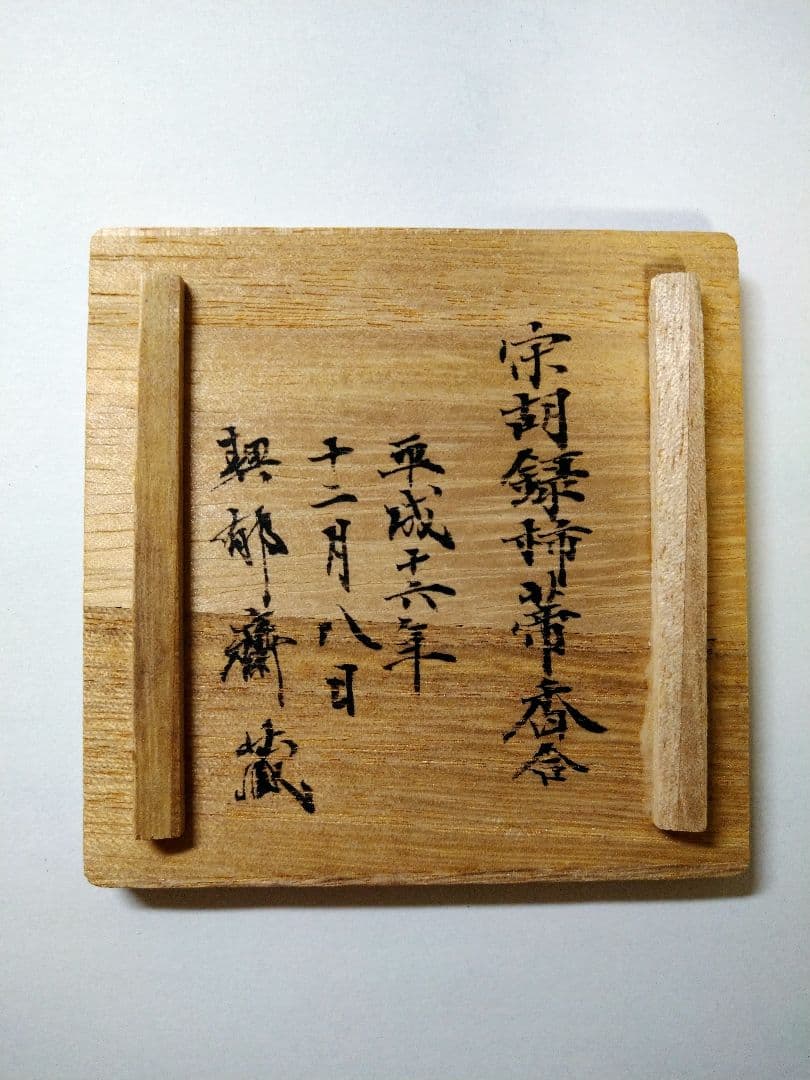 宋胡録柿蒂香合
平成十六年
十二月八日
郁齋蔵